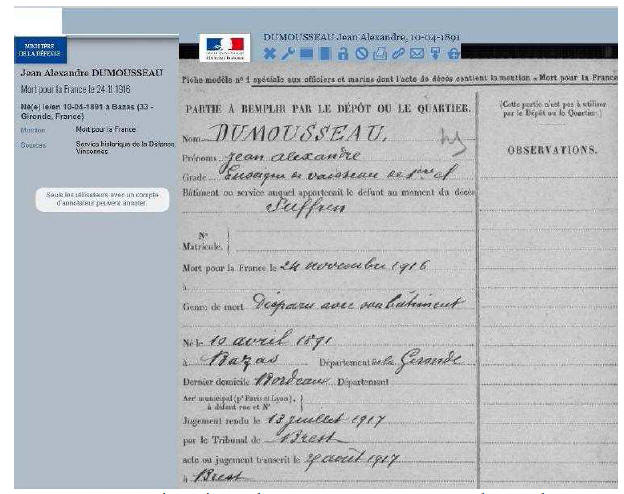 DUMOUSSEAU Jean Alexandre, 10-04-1891
MINISTÈRE
DE LA DÉFENSE
Jean Alexandre DUMOUSSEAU
Mort pour la France le 24-11-1916
Né(e) le/en 10-04-1891 à Bazas (33 -
Gironde, France)
Mention Mort pour la France
Sources Service historique de la Défense,
Vincennes
Seuls les utilisateurs avec un compte
d'annotateur peuvent annoter.
Fiche modèle n° 1 spéciale aux officiers et marins dont l'acte de décès contient la mention « Mort pour la France
PARTIE À REMPLIR PAR LE DÉPÔT OU LE QUARTIER.
Nom DUMOUSSEAU,
Prénoms Jean Alexandre
Grade Enseigne de vaisseau de 1ère cl
Bâtiment ou service auquel appartenait le défunt au moment du décès
Suffren
N°
Matricule.
Mort pour la France le 24 novembre 1916
à
Genre de mort Disparu avec son bâtiment
Né le 10 avril 1891
à Bazas Département de la Gironde
Dernier domicile Bordeaux Département
Arr' municipal (p' Paris et Lyon),
à défaut rue et N°
Jugement rendu le 13 juillet 1917
par le Tribunal de Brest
acte ou jugement transcrit le août 1917
à Brest
(Cette partie n'est pas à utiliser
par le Dépôt ou le Quartier.)
OBSERVATIONS.